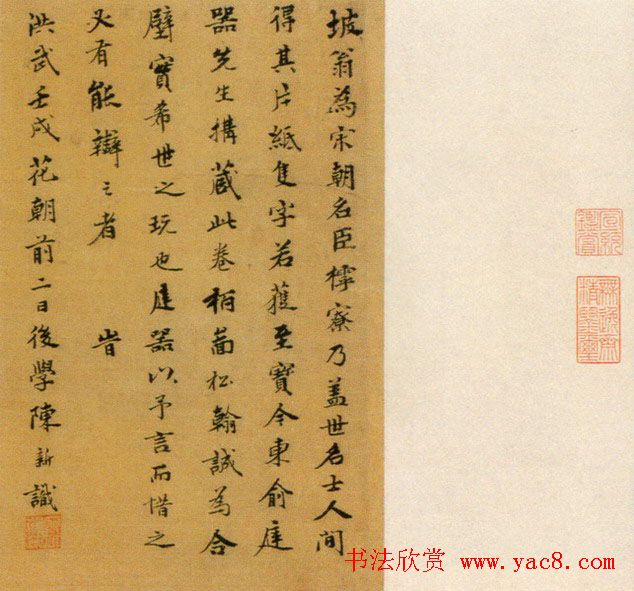 坡翁為宋朝名臣樗寮乃盖世名士人間
得其片紙隻字若獲至寶今東俞庭
器先生搆藏此卷栢啚松翰誠為合
璧寶希世之玩也庭器以予言而惜之
又有能辯之者 旹
洪武壬戌花朝前二日後學陳新識
宣統鑒賞
無逸齋精鑒璽
书法欣赏 www.yac8.com